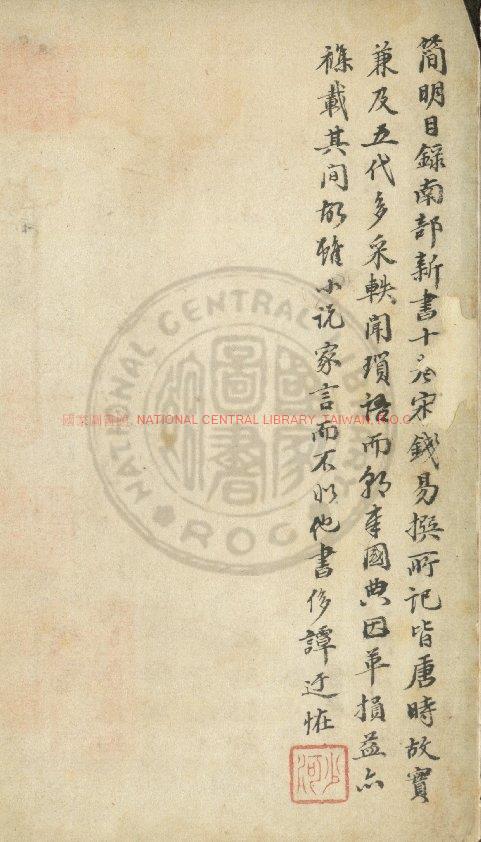 簡明目錄南部新書十卷宋錢易撰所記皆唐時故實
兼及五代多采軼聞瑣語而朝章國典因革損益亦
襍載其間故雖小说家言而不似他書侈譚迂恠
國家圖書館, NATIONAL CENTRAL LIBRARY, TAIWAN, R.O.C
NATIONAL CENTRAL LIBRARY
ROC
國家圖書館